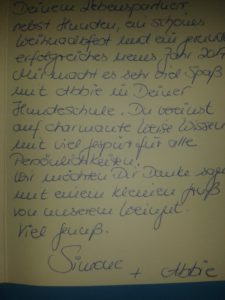 Deinem Lebenspartner,
nebst Hunden, ein schönes
Weihnachtsfest und ein
erfolgreiches neues Jahr
Mir macht es sehr viel Spaß
mit Abbie in Deiner
Hundeschule. Du vereinst
auf charmante Weise Wissen
mit viel Gespür für alle
Persönlichkeiten!
Wir möchten Dir Danke sagen
mit einem kleinen Gruß
von unserem Weingut.
Viel Genuß.
Simone + Abbie